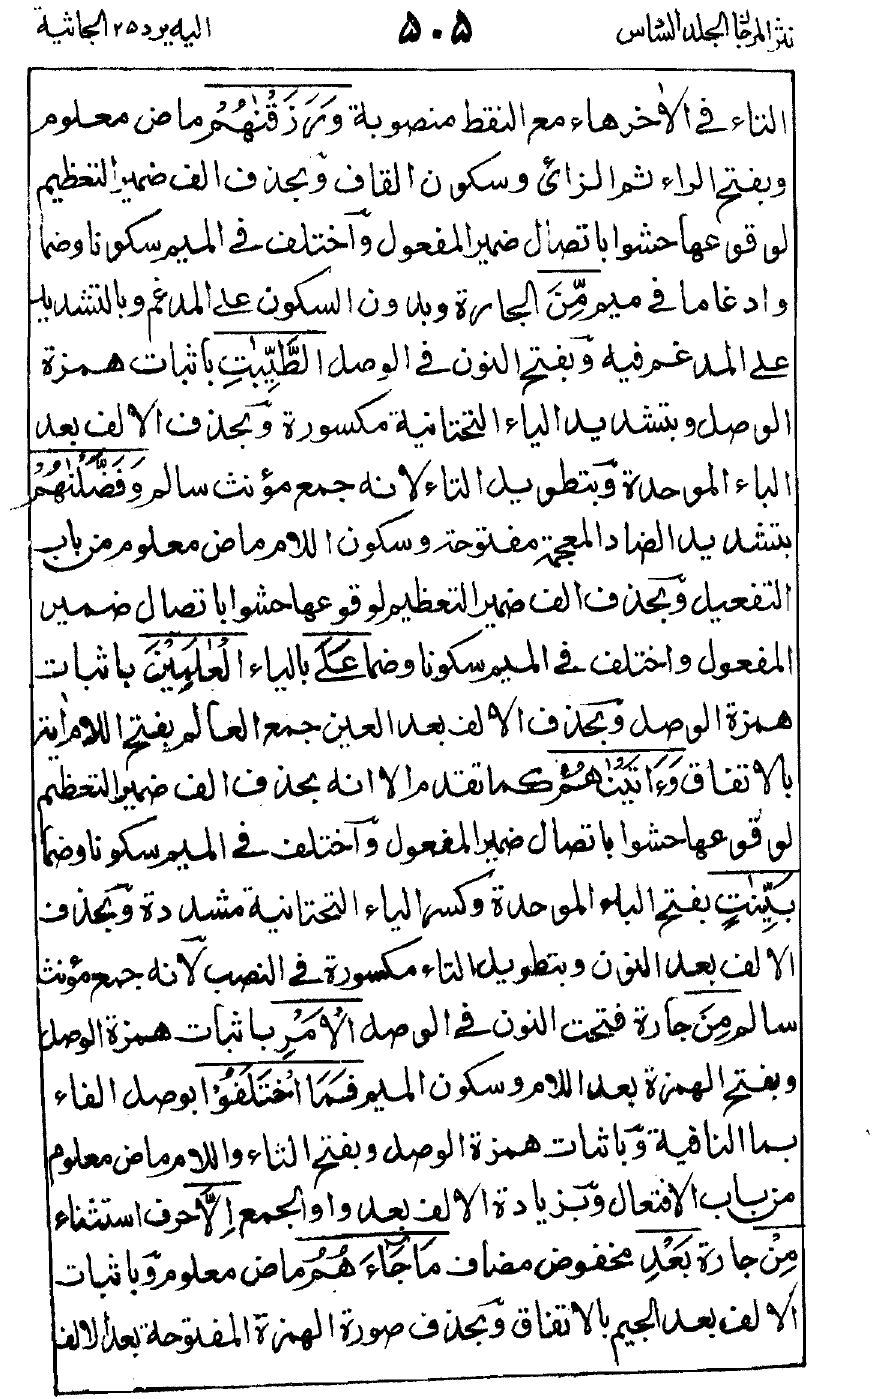 نثر المرجان الجلد السادس ۵۰۵ اليه يرد ۲۵ الجاثية
التاء في الأخر هاء مع النقط منصوبة وَرَزَقْنٰهُمْ ماض معلوم
وبفتح الراء ثم الزائ وسكون القاف وَبحذف الف ضمير التعظيم
لوقوعها حشوا باتصال ضمير المفعول وَآختلف في الميم سكونا وضما
وادغاما في ميم مِّنَ الجارة وبدون السكون على المدغم وبالتشديد
على المدغم فيه وَبفتح النون في الوصل الطَّيِّبٰتِ باثبات همزة
الوصل وبتشديد الياء التحتانية مكسورة وَبحذف الالف بعد
الباء الموحدة وَبتطويل التاء لانه جمع مؤنث سالم وَفَضَّلْنٰهُمْ
بتشديد الضاد المعجمة مفتوحة وسكون اللام ماض معلوم من باب
التفعيل وَبحذف الف ضمير التعظيم لوقوعها حشوا باتصال ضمير
المفعول واختلف في الميم سكونا وضما عَلَى بالياء الْعٰلَمِيْنَ باثبات
همزة الوصل وَبحذف الالف بعد العين جمع العالم بفتح اللام اية
بالاتفاق وَءَاتَيْنٰهُمْ كما تقدم الا انه بحذف الف ضمير التعظيم
لوقوعها حشوا باتصال ضمير المفعول وَآختلف في الميم سكونا وضما
بَيِّنٰتٍ بفتح الباء الموحدة وكسر الياء التحتانية مشددة وَبحذف
الالف بعد النون وبتطويل التاء مكسورة في النصب لآنه جمع مؤنث
سالم مِنَ جارة فتحت النون في الوصل الْأَمْرِ باثبات همزة الوصل
وبفتح الهمزة بعد اللام وسكون الميم فَمَا اخْتَلَفُوْا بوصل الفاء
بما النافية وَباثبات همزة الوصل وبفتح التاء واللام ماض معلوم
من باب الافتعال وَبزيادة الالف بعد واو الجمع اِلَّا حرف استثناء
مِنْ جارة بَعْدِ مخفوض مضاف مَا جَاءَهُمْ ماض معلوم وَباثبات
الالف بعد الجيم بالاتفاق وَبحذف صورة الهمزة المفتوحة بعد الالف